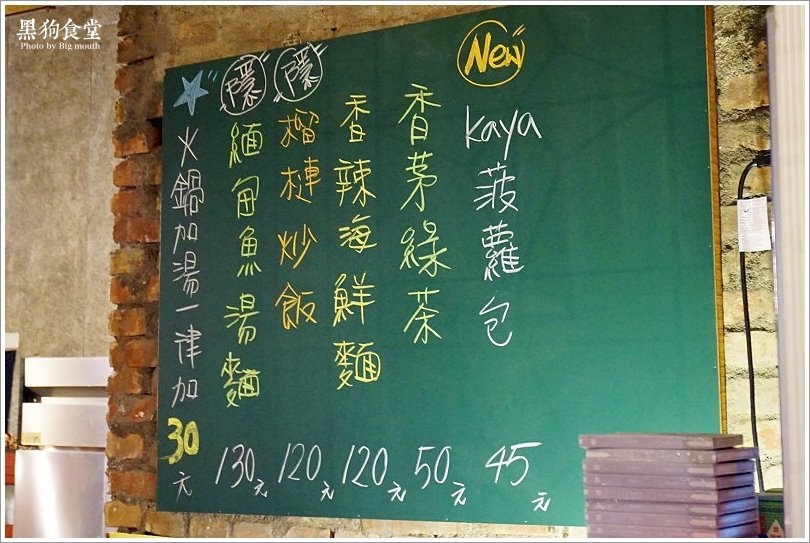 黑狗食堂
Photo by Big mouth
New
kaya菠蘿包 45元
香茅綠茶 50元
香辣海鮮麵 120元
隱
榴槤炒飯 120元
隱
緬甸魚湯麵 130元
火鍋加湯一律加30元